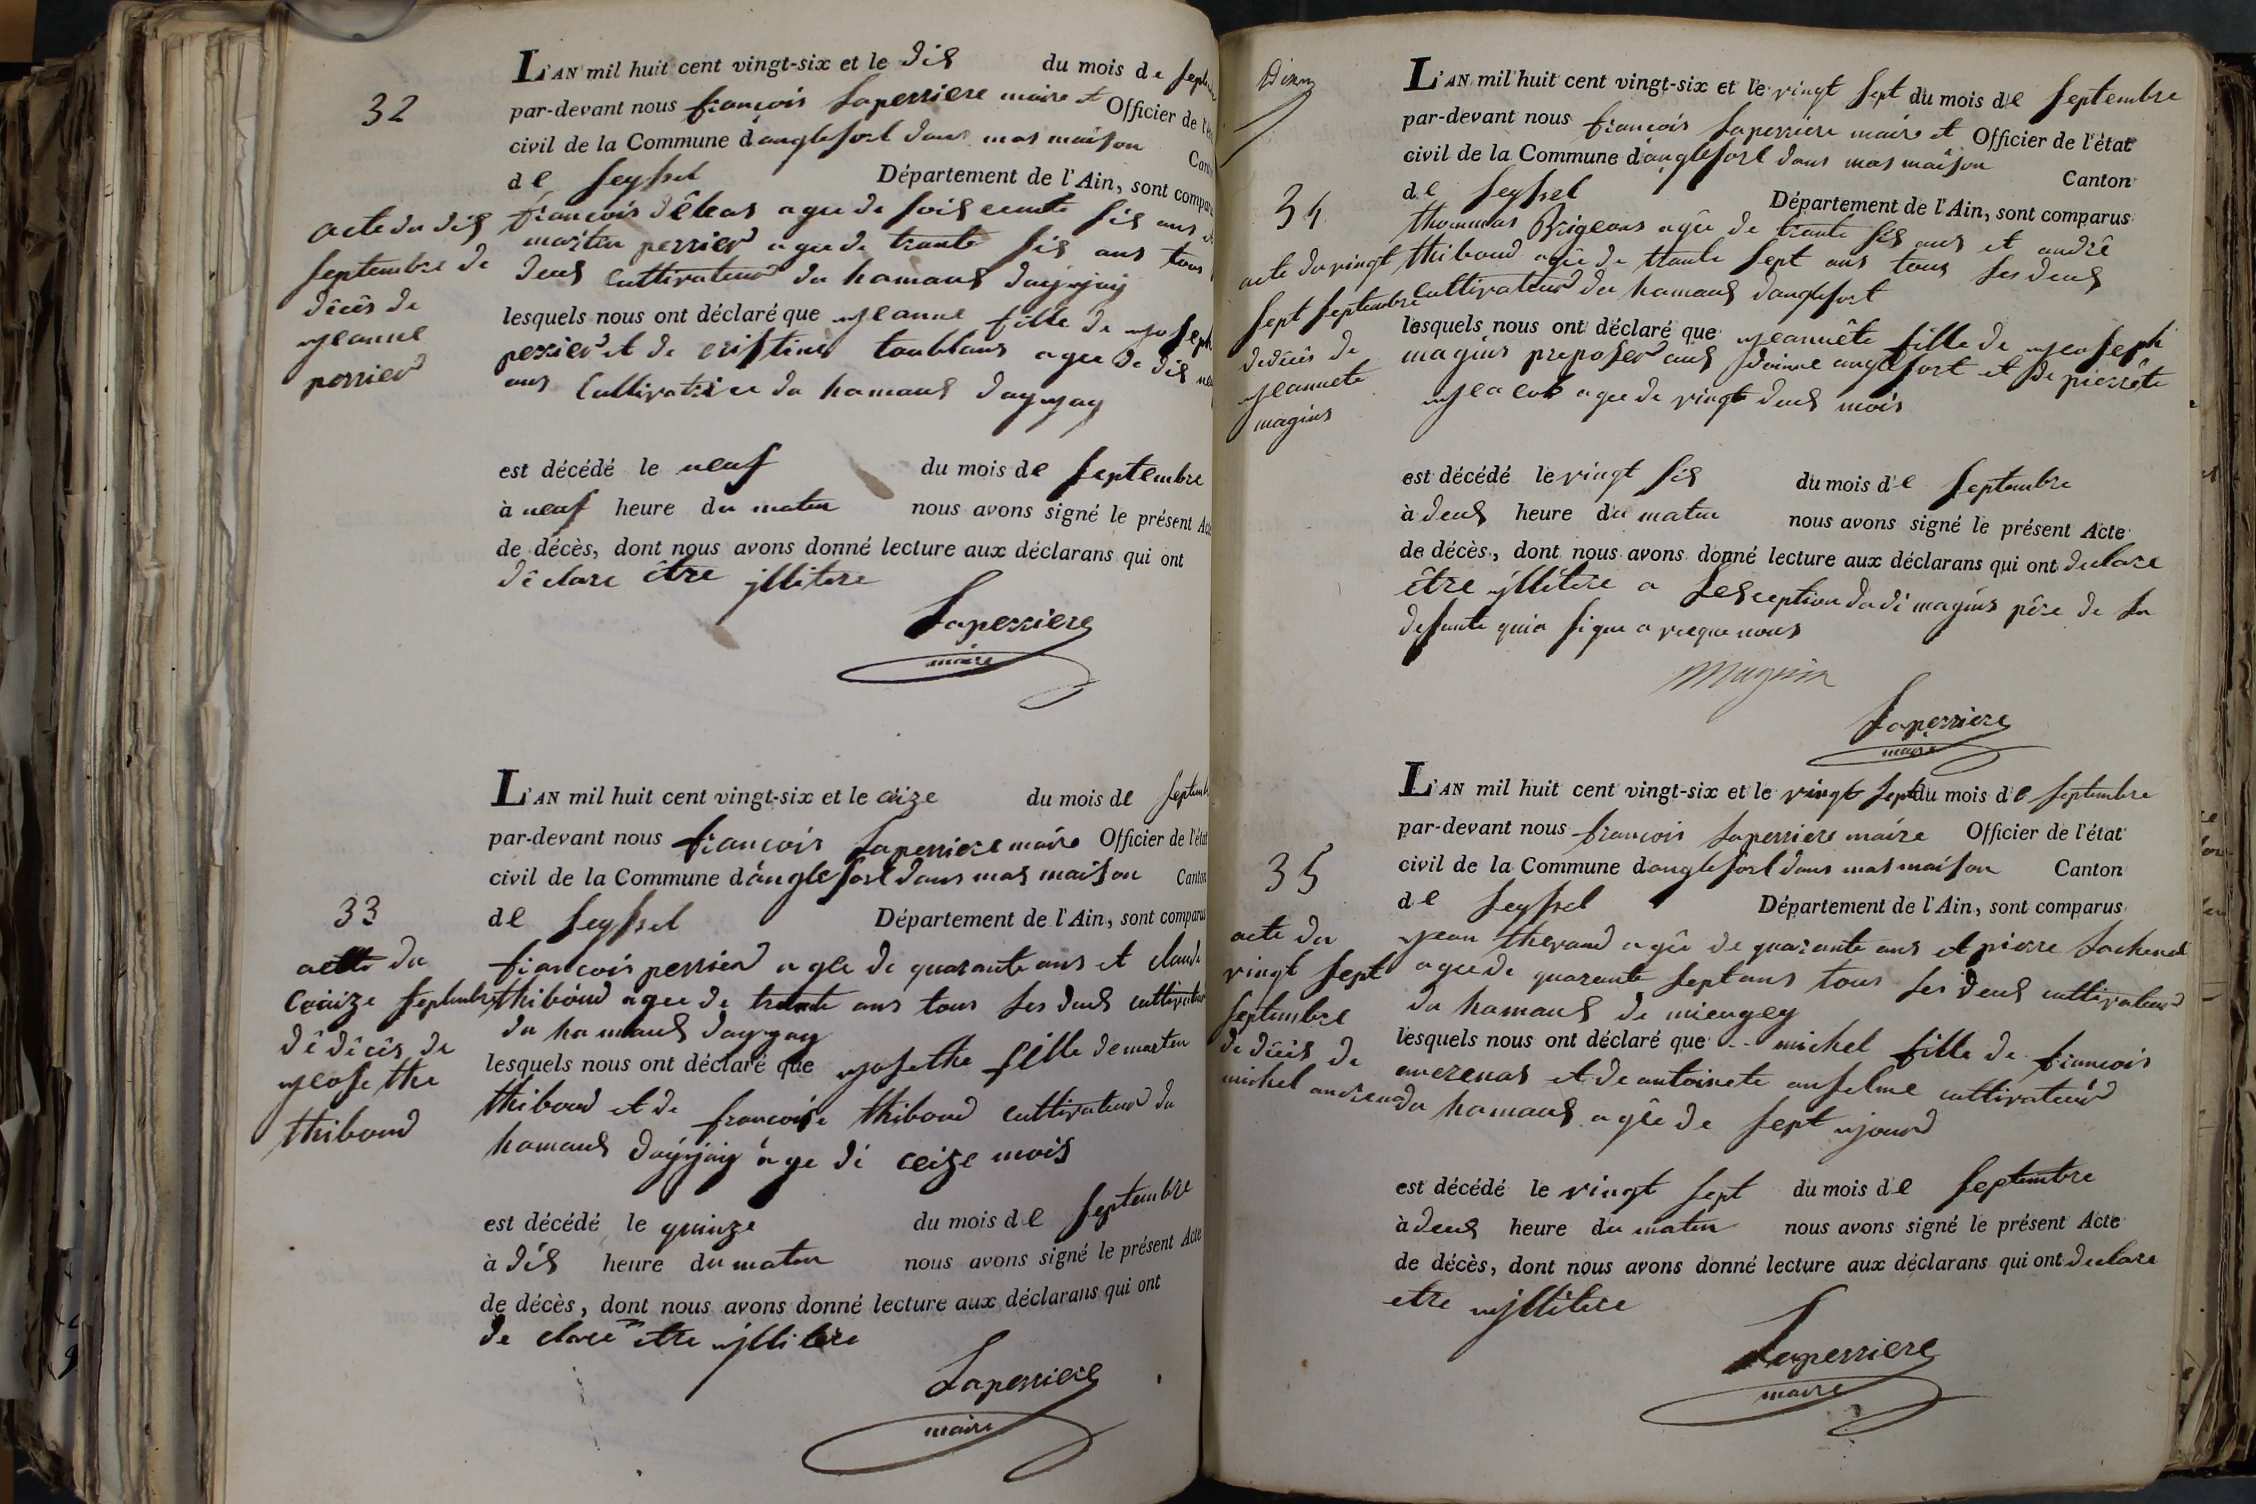 32
acte du dis
septembre de
décès de
jeanne
perrier
L'AN mil huit cent vingt-six et le dis du mois de
par-devant nous françois Laperriere maire et Officier de
civil de la Commune d'anglefort dans mas maison
de Seyssel Département de l'Ain, sont compa
françois agee de soiscente sis ans
martin perrier agee de trante sis ans tous
deus cultivateur du hamaus dayjay
lesquels nous ont déclaré que jeanne fille de joseph
perier et de cristine agee de dis
ans Cultivatrice du hamaus dayjay
est décédé le neuf du mois de septembre
à neuf heure du matin nous avons signé le présent
de décès, dont nous avons donné lecture aux déclarans qui ont
déclare être jllitere
Laperriere
maire
33
acte du
septembre
dê dêcês de
jeosethe
thiboud
L'AN mil huit cent vingt-six et le du mois de
par-devant nous françois Laperriere maire Officier de l'état
civil de la Commune d'anglefort dans mas maison Canton
de Seyssel Département de l'Ain, sont comparus
françois perrier agee de quarante ans et claude
thiboud agee de trente ans tous les deus cultivateur
du hamaus dayjay
lesquels nous ont déclaré que josethe fille de marten
thiboud et de françoise thiboud cultivateur du
hamaus dayjay age dé ceize mois
est décédé le quinze du mois de septembre
à dis heure du matin nous avons signé le présent Acte
de décès, dont nous avons donné lecture aux déclarans qui ont
de clare etre jllitere
Laperriere
maire
34
acte du vingt
sept septembre
de décés de
jeannete
magins
L'AN mil huit cent vingt-six et le vingt sept du mois de septembre
par-devant nous françois Laperriere maire et Officier de l'état
civil de la Commune d'anglefort dans mas maison Canton
de Seyssel Département de l'Ain, sont comparus
thommas Brigeous agée de trante sis ans et andrê
thiboud agée de trante sept ans tous les deus
cultivateur du hamaus danglefort
lesquels nous ont déclaré que jeannête fille de jeoseph
magins preposer aus anglefort et de pierrête
agee de vingt deus mois
est décédé le vingt sis du mois de septembre
à deus heure du matin nous avons signé le présent Acte
de décès, dont nous avons donné lecture aux déclarans qui ont declare
être jllitere a lesception dudi magins pêre de la
defunte quia signe avecque nous
Magnin
Laperriere
maire
35
acte du
vingt sept
septembre
de décés de
michel
L'AN mil huit cent vingt-six et le vingt sept du mois de septembre
par-devant nous françois Laperriere maire Officier de l'état
civil de la Commune danglefort dans mas maison Canton
de Seyssel Département de l'Ain, sont comparus
jean agêe de quarante ans et pierre
agee de quarente sept ans tous les deus cultivateur
du hamaus de miengey
lesquels nous ont déclaré que michel fille de françois
et de antoinete anselme cultivateur
du hamaus agêe de sept jour
est décédé le vingt sept du mois de septembre
à deus heure du matin nous avons signé le présent Acte
de décès, dont nous avons donné lecture aux déclarans qui ont declare
etre jllitere
Laperriere
maire